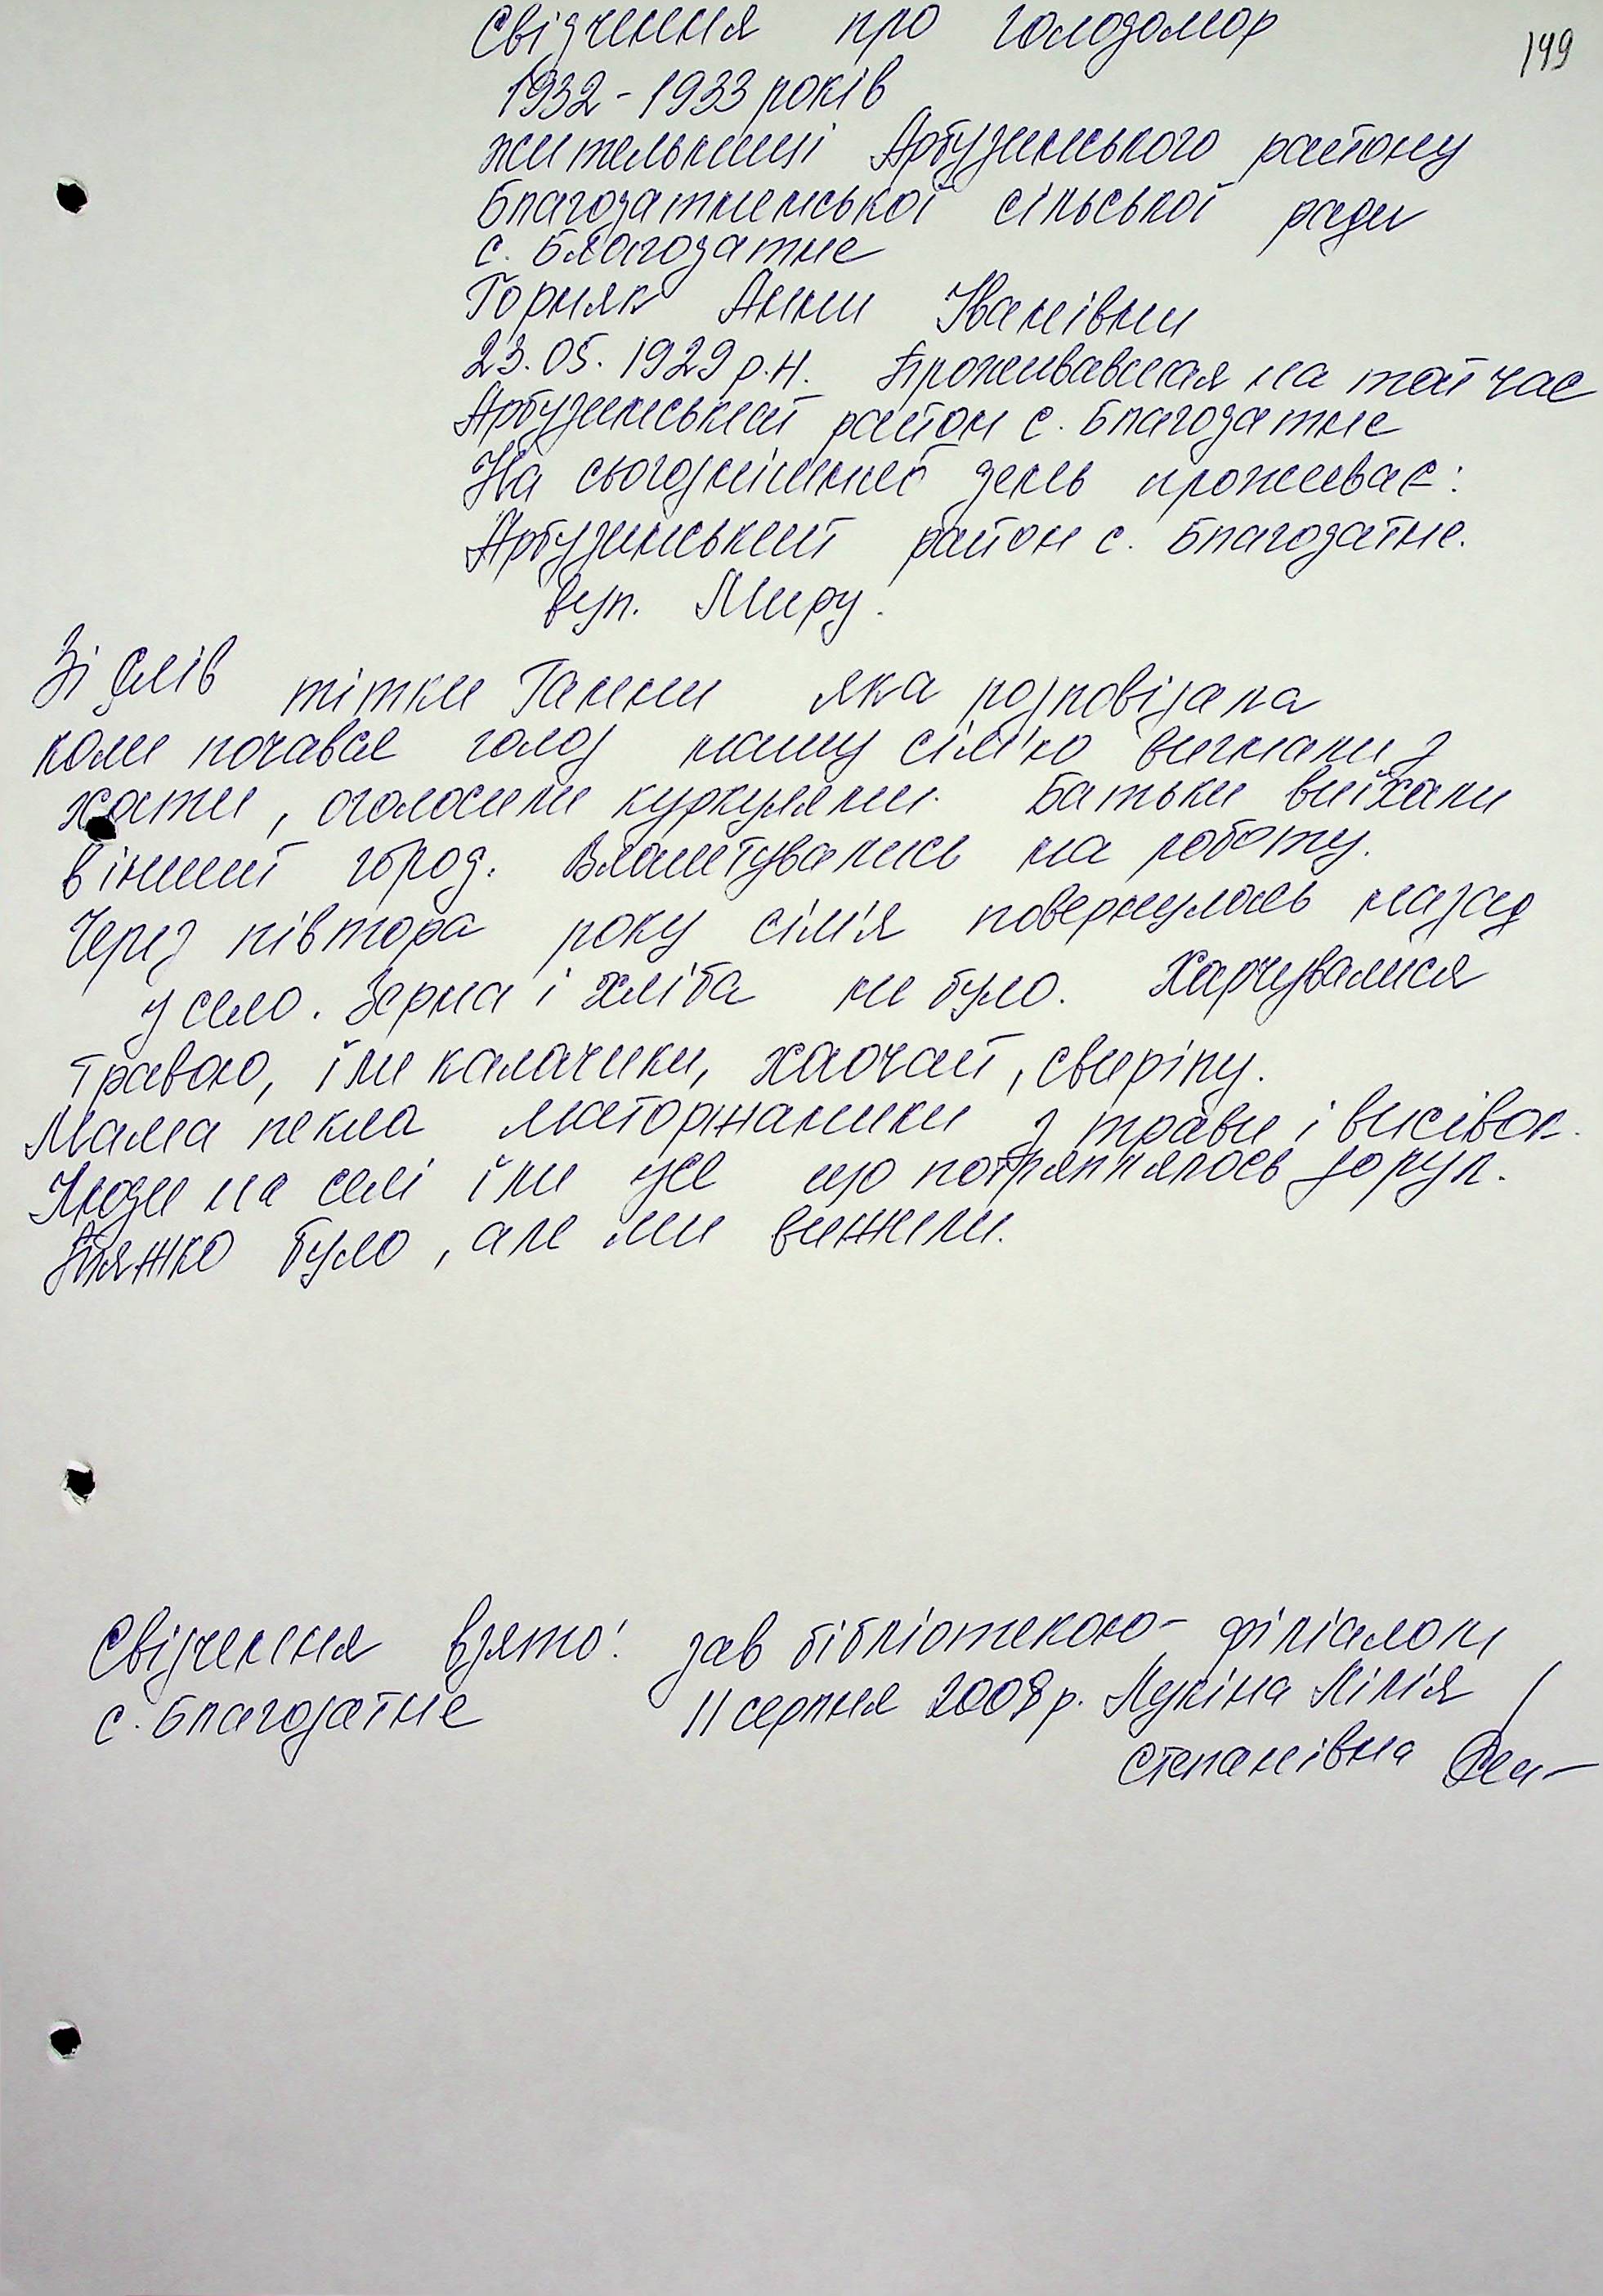 149
Свідчення про голодомор
1932-1933 років
жительниці Арбузинського району
Благодатненської сільської ради
с. Благодатне
Горняк Анни Іванівни
23.05.1929 р.н. проживавшая на той час
Арбузинський район с. Благодатне
На сьогоднішній день проживає:
Арбузинський район с. Благодатне.
вул. Миру.
Зі слів тітки Ганни яка розповідала
коли почався голод нашу сім'ю вигнали з
хати, оголосили куркулями. Батьки виїхали
в інший город. Влаштувались на роботу.
Через півтора року сім'я повернулась назад
у село. Зерна і хліба не було. Харчувалися
травою, їли калачики, свиріпу.
Мама пекла маторжаники з трави і висівок.
Люди на селі їли усе що потрапл'ялось до рук.
Тяжко було, але ми вижили.
Свідчення взято: зав бібліотекою- філіалом
с. Благодатне 11 серпня 2008 р. Лукіна Лілія
Степанівна